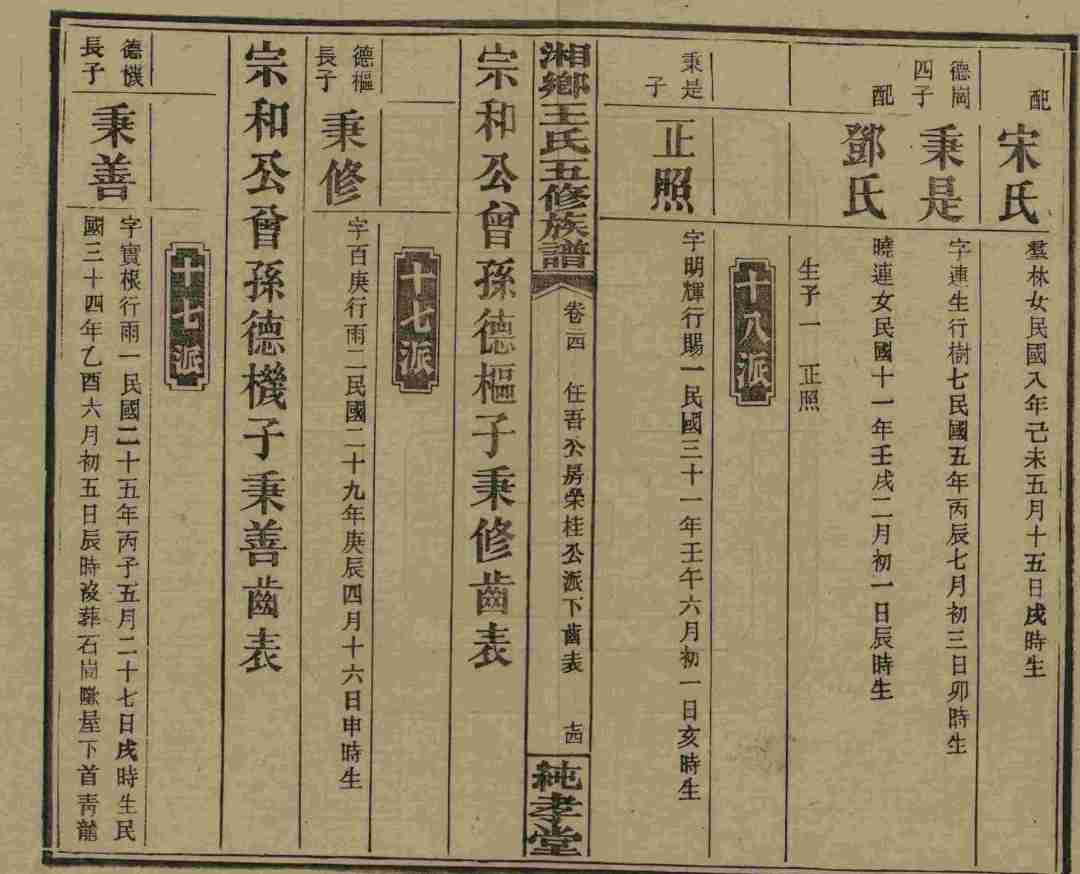 配
宋氏
羣林女民國八年己未五月十五日戌時生
德崗
四子
秉是
字連生行樹七民國五年丙辰七月初三日卯時生
配
鄧氏
曉連女民國十一年壬戌二月初一日辰時生
生子一 正照
十八派
秉是
子
正照
字明輝行賜一民國三十一年壬午六月初一日亥時生
湘鄉王氏五修族譜
卷二四 任吾公房榮桂公派下齒表 十四
純孝堂
宗和公曾孫德樞子秉修齒表
十七派
德樞
長子
秉修
字百庚行雨二民國二十九年庚辰四月十六日申時生
宗和公曾孫德機子秉善齒表
十七派
德機
長子
秉善
字實根行雨一民國二十五年丙子五月二十七日戌時生民
國三十四年乙酉六月初五日辰時沒葬石崗屋下首青龍